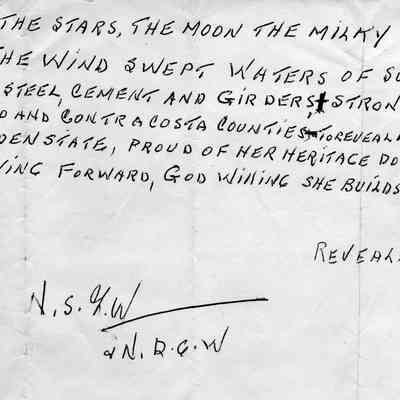 THE STARS, THE MOON THE MILKY
THE WIND SWEPT WATERS OF
STEEL, CEMENT AND GIRDERS, STRON
AND CONTRA COSTA COUNTIES, TO REVEAL
DEN STATE, PROUD OF HER HERITAGE DO
ING FORWARD, GOD WILLING SHE BUILDS
REVEAL
N.S.G.W
& N.D.G.W